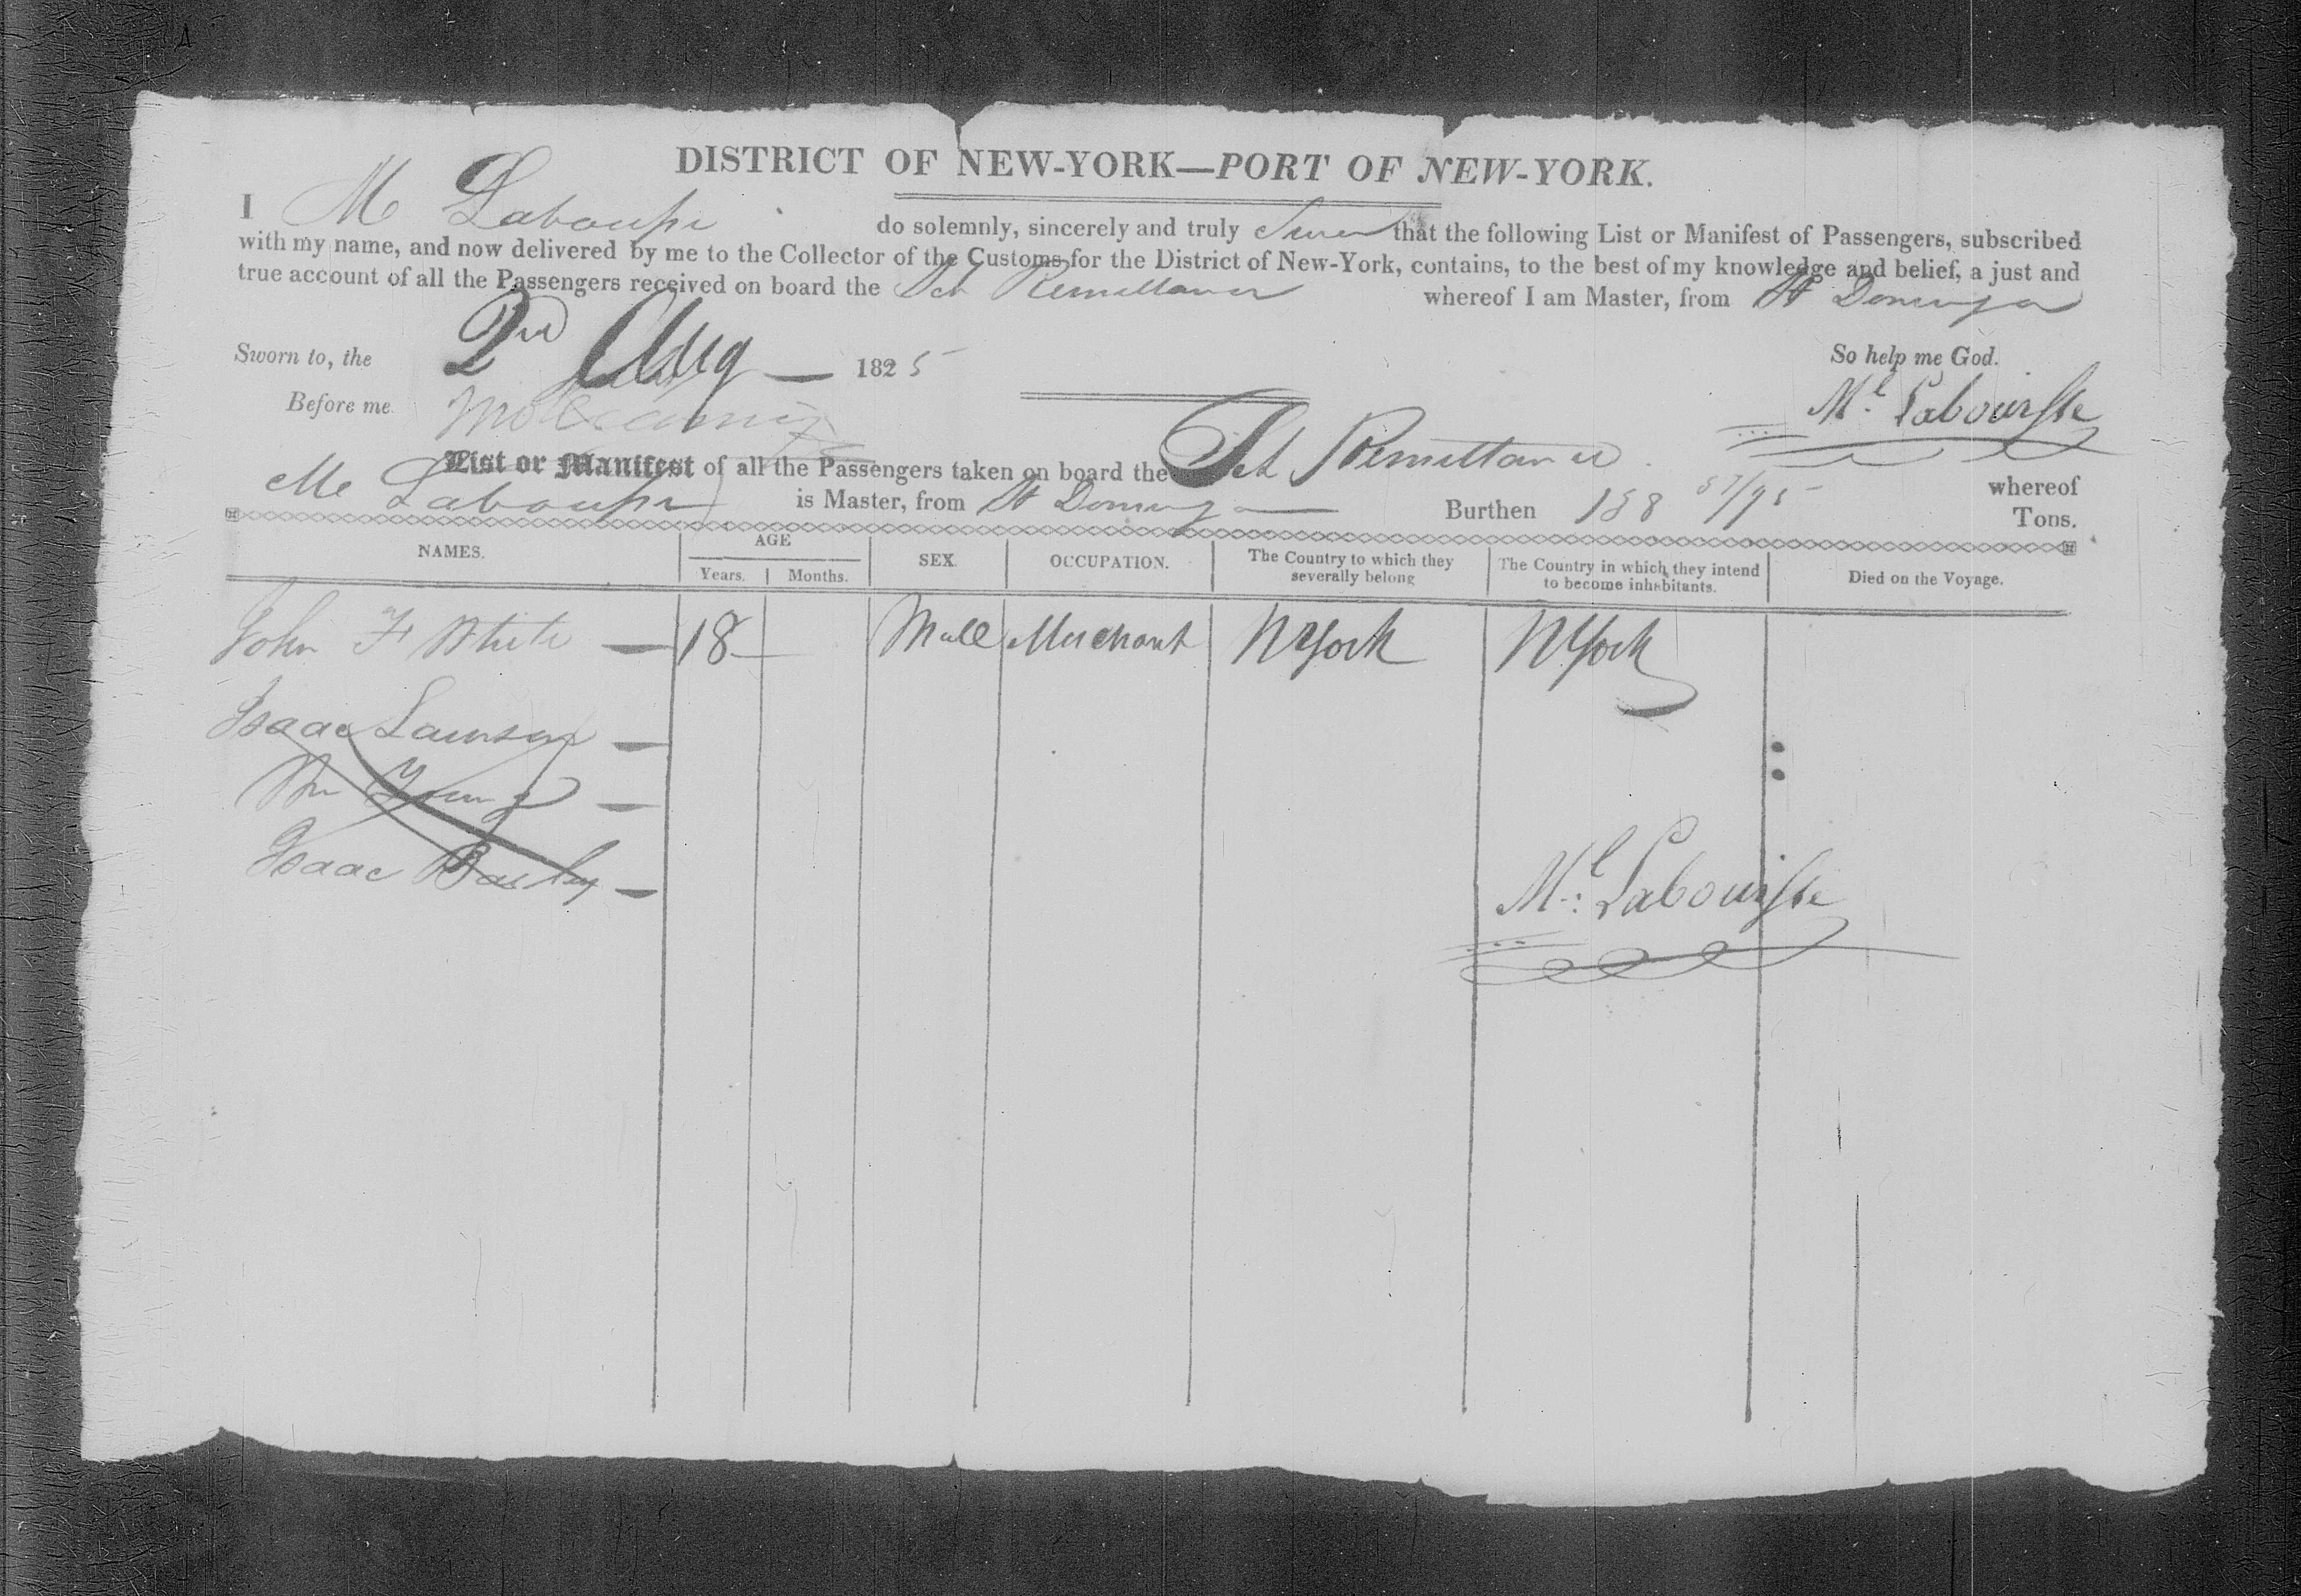 DISTRICT OF NEW-YORK—PORT OF NEW-YORK.
I M Labousse do solemnly, sincerely and truly Swear that the following List or Manifest of Passengers, subscribed
with my name, and now delivered by me to the Collector of the Customs for the District of New-York, contains, to the best of my knowledge and belief, a just and
true account of all the Passengers received on board the Sch Remittance whereof I am Master, from St Domingo
Sworn to, the 2nd Aug 1825 So help me God.
Before me Ml. Labouisse
List or Manifest of all the Passengers taken on board the Sch Remittance whereof
M Labousse is Master, from St Domingo Burthen 138 57/95 Tons.
NAMES. AGE SEX. OCCUPATION. The Country to which they severally belong The Country in which they intend to become inhabitants. Died on the Voyage.
Years. Months.
John F White — 18 — Male Merchant NYork NYork
Isaac Lawson —
Wm Young —
Isaac Basley —
Ml. Labouisse